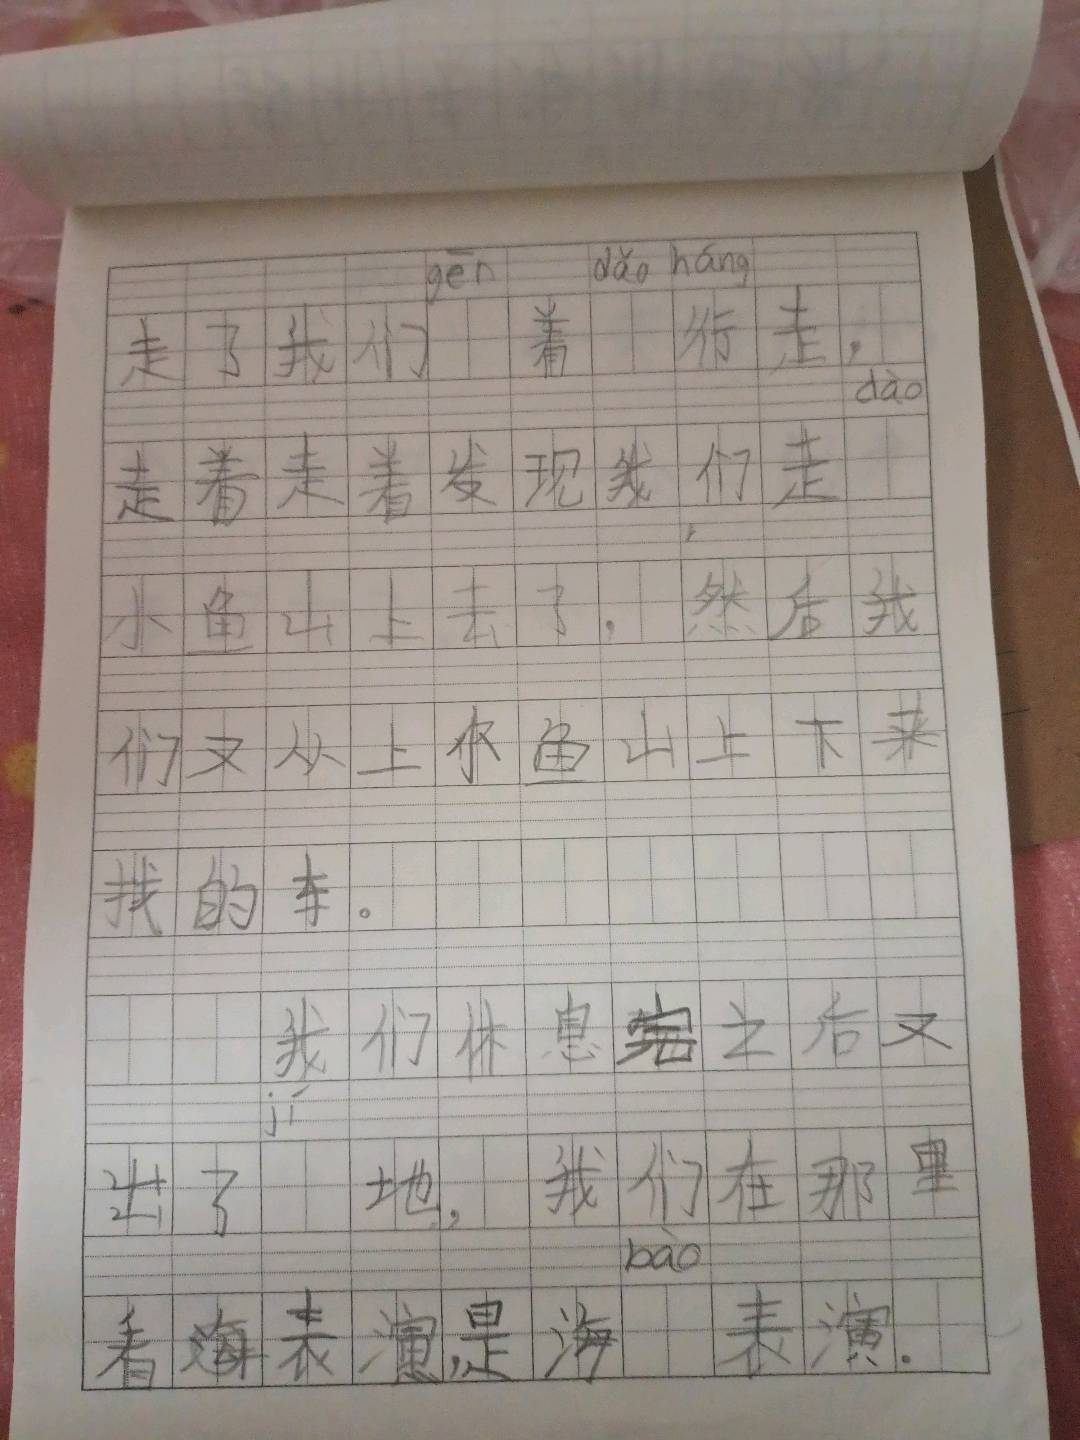 gēn dǎo háng
走了我们 着 行走,
dào
走着走着发现我们走
小鱼山上去了,然后我
们又从上小鱼山上下来
找的车。
我们休息完之后又
jí
出了 地,我们在那里
bào
看海表演,是海 表演.